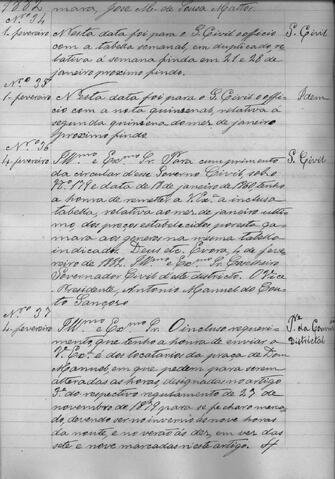 1882 mara, José M. de Sousa Mattos.
Nº 34
1. fevereiro Nesta data foi para o G. Civil o officio G. Civil
com a tabela semanal, em duplicado, re
lativa á semana finda em 21 e 28 de
janeiro proximo findo.
Nº 35
1. fevereiro Nesta data foi para o G. Civil o offi- Idem
cio com a nota quinzenal, relativa á
segunda quinzena do mez de janeiro
proximo findo.
Nº 36
4. fevereiro Illmo e Exmo Sr. Para cumprimento G. Civil
da circular d'esse Governo Civil, sob o
nº 174 e data de 18 de janeiro de 1861, tenho
a honra de remetter a V. Exa a inclusa
tabela, relativa ao mez de janeiro ulti
mo, dos preços estabelecidos por esta ca
mara aos generos na mesma tabela
indicados. Deus etc. Evora, 4 de feve
reiro de 1882. Illmo e Exmo Sr. Conselheiro
Governador Civil d'este districto. O Vice
Presidente, Antonio Manuel do Cou
to
Nº 37
4. fevereiro Illmo e Exmo Sr. O incluso requeri-
mento, que tenho a honra de enviar a
V. Exa é dos locatarios da praça de Dom
Manuel, em que pedem para serem
alteradas as horas designadas no artigo
3º do respectivo regulamento de 27 de
novembro de 1879 para se fechar o merca
do, devendo ser no inverno ás nove horas
da noute, e no verão ás dez, em vez das
sete e nove marcadas n'este artigo.
Districtal